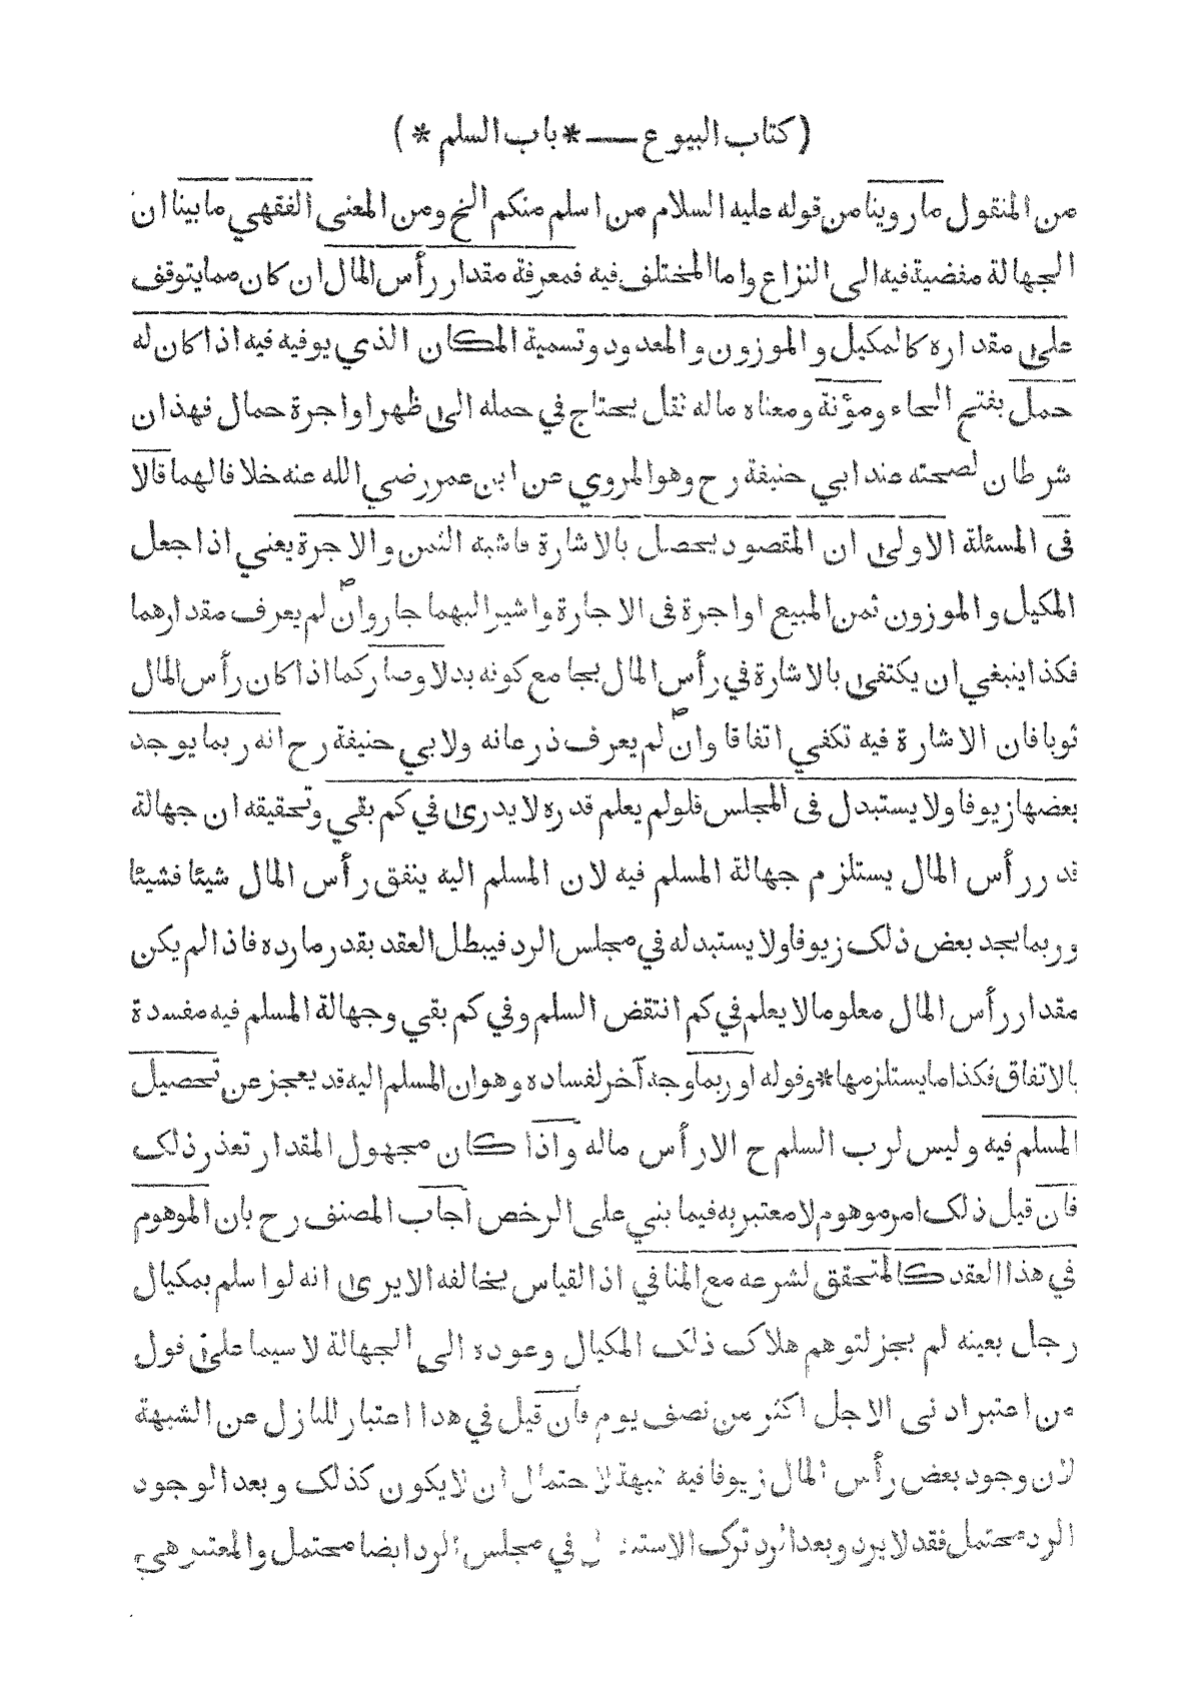 (كتاب البيوع — * باب السلم *)
من المنقول ما روينا من قوله عليه السلام من اسلم منكم الخ ومن المعنى الفقهي ما بينا ان
الجهالة مفضية فيه الى النزاع واما المختلف فيه فمعرفة مقدار رأس المال ان كان مما يتوقف
على مقداره كالمكيل والموزون والمعدود وتسمية المكان الذي يوفيه فيه اذا كان له
حمل بفتح الحاء ومؤنة ومعناه ماله ثقل يحتاج في حمله الى ظهر او اجرة حمال فهذان
شرطان لصحته عند ابي حنيفة رح وهو المروي عن ابن عمر رضي الله عنه خلافا لهما قالا
فى المسئلة الاولى ان المقصود يحصل بالاشارة فاشبه الثمن والاجرة يعني اذا جعل
المكيل والموزون ثمن المبيع او اجرة فى الاجارة واشير اليهما جاز وان لم يعرف مقدارهما
فكذا ينبغي ان يكتفى بالاشارة في رأس المال بجامع كونه بدلا وصار كما اذا كان رأس المال
ثوبا فان الاشارة فيه تكفي اتفاقا وان لم يعرف ذرعانه ولابي حنيفة رح انه ربما يوجد
بعضها زيوفا ولا يستبدل فى المجلس فلو لم يعلم قدره لا يدرى في كم بقي وتحقيقه ان جهالة
قدر رأس المال يستلزم جهالة المسلم فيه لان المسلم اليه ينفق رأس المال شيئا فشيئا
وربما يجد بعض ذلك زيوفا ولا يستبدله في مجلس الرد فيبطل العقد بقدر ما رده فاذا لم يكن
مقدار رأس المال معلوما لا يعلم في كم انتقض السلم وفي كم بقي وجهالة المسلم فيه مفسدة
بالاتفاق فكذا ما يستلزمها * وقوله او ربما وجه آخر لفساده وهو ان المسلم اليه قد يعجز عن تحصيل
المسلم فيه وليس لرب السلم ح الا رأس ماله واذا كان مجهول المقدار تعذر ذلك
فان قيل ذلك امر موهوم لا معتبر به فيما بني على الرخص اجاب المصنف رح بان الموهوم
في هذا العقد كالمتحقق لشرعه مع المنافي اذ القياس يخالفه الا يرى انه لو اسلم بمكيال
رجل بعينه لم يجز لتوهم هلاك ذلك المكيال وعوده الى الجهالة لا سيما على قول
من اعتبر ادنى الاجل اكثر من نصف يوم فان قيل في هذا اعتبار للنازل عن الشبهة
لان وجود بعض رأس المال زيوفا فيه شبهة لاحتمال ان لا يكون كذلك وبعد الوجود
الرد محتمل فقد لا يرد وبعد الرد ترك في مجلس الرد ايضا محتمل والمعتبر هي